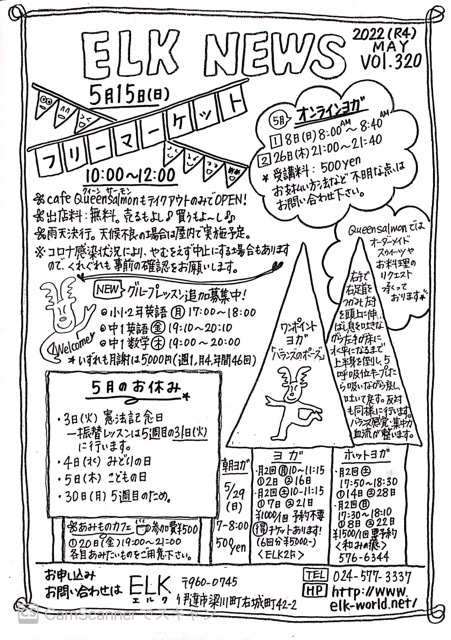 ELK NEWS
2022(R4)
MAY
VOL.320
5月15日(日)
フリーマーケット
10:00〜12:00
※cafe Queensalmonもテイクアウトのみで OPEN!
クィーン サーモン
※出店料:無料。売るもよし♪買うもよ〜し♪
※雨天決行。天候不良の場合は屋内で実施予定。
※コロナ感染状況により、やむをえず中止にする場合もあります
ので、くれぐれも事前の確認をお願いします。
5月 オンラインヨガ
1 8日(日)8:00AM〜8:40AM
2 26日(木)21:00〜21:40
*受講料:500yen
お支払い方法など不明な点は
お問い合わせ下さい。
Queensalmonでは
オーダーメイド
スウィーツや
お料理の
リクエスト
承って
おります
NEW グループレッスン追加募集中!
Welcome
◎小1・2年英語(月)17:00〜18:00
◎中1英語(金)19:10〜20:10
◎中1数学(木)19:00〜20:00
*いずれも月謝は5000円(週1,月4,年間46回)
ワンポイント
ヨガ
バランスのポーズ
右手で
右足首を
つかみ、左手
を頭上に伸
ばし息を吐きな
がら左手が床に
水平になるまで
上半身を倒し、5
呼吸位キープした
ら吸いながら戻し、
吐いて戻す。反対
も同様に行います。
バランス感覚・集中力
血流が整います。
5月のお休み
・3日(火) 憲法記念日
―振替レッスンは5週目の31日(火)
に行います。
・4日(水) みどりの日
・5日(木) こどもの日
・30日(月) 5週目のため。
※あみものカフェ 参加費¥500
①20日(金)19:00〜21:00
各自あみたいものをご用意下さい。
朝ヨガ
5/29
(日)
7-8:00
500yen
ヨガ
・月2回(月)10-11:15
①2日 ②16日
・月2回(土)10-11:15
①7日 ②21日
¥1000/1回 予約不要
得 チケットあります!
(6回分¥5000-)
<ELK2F>
ホットヨガ
・月2回(土)
17:50-18:30
①14日 ②28日
・月2回(日)
17:30-18:10
①8日 ②22日
¥1500/1回 要予約
<和みの痕>
576-6344
お申し込み
お問い合わせは
ELK
エルク
〒960-0745
伊達市梁川町右城町42-2
TEL 024-577-3337
HP http://www.
elk-world.net/
CamScannerでスキャン